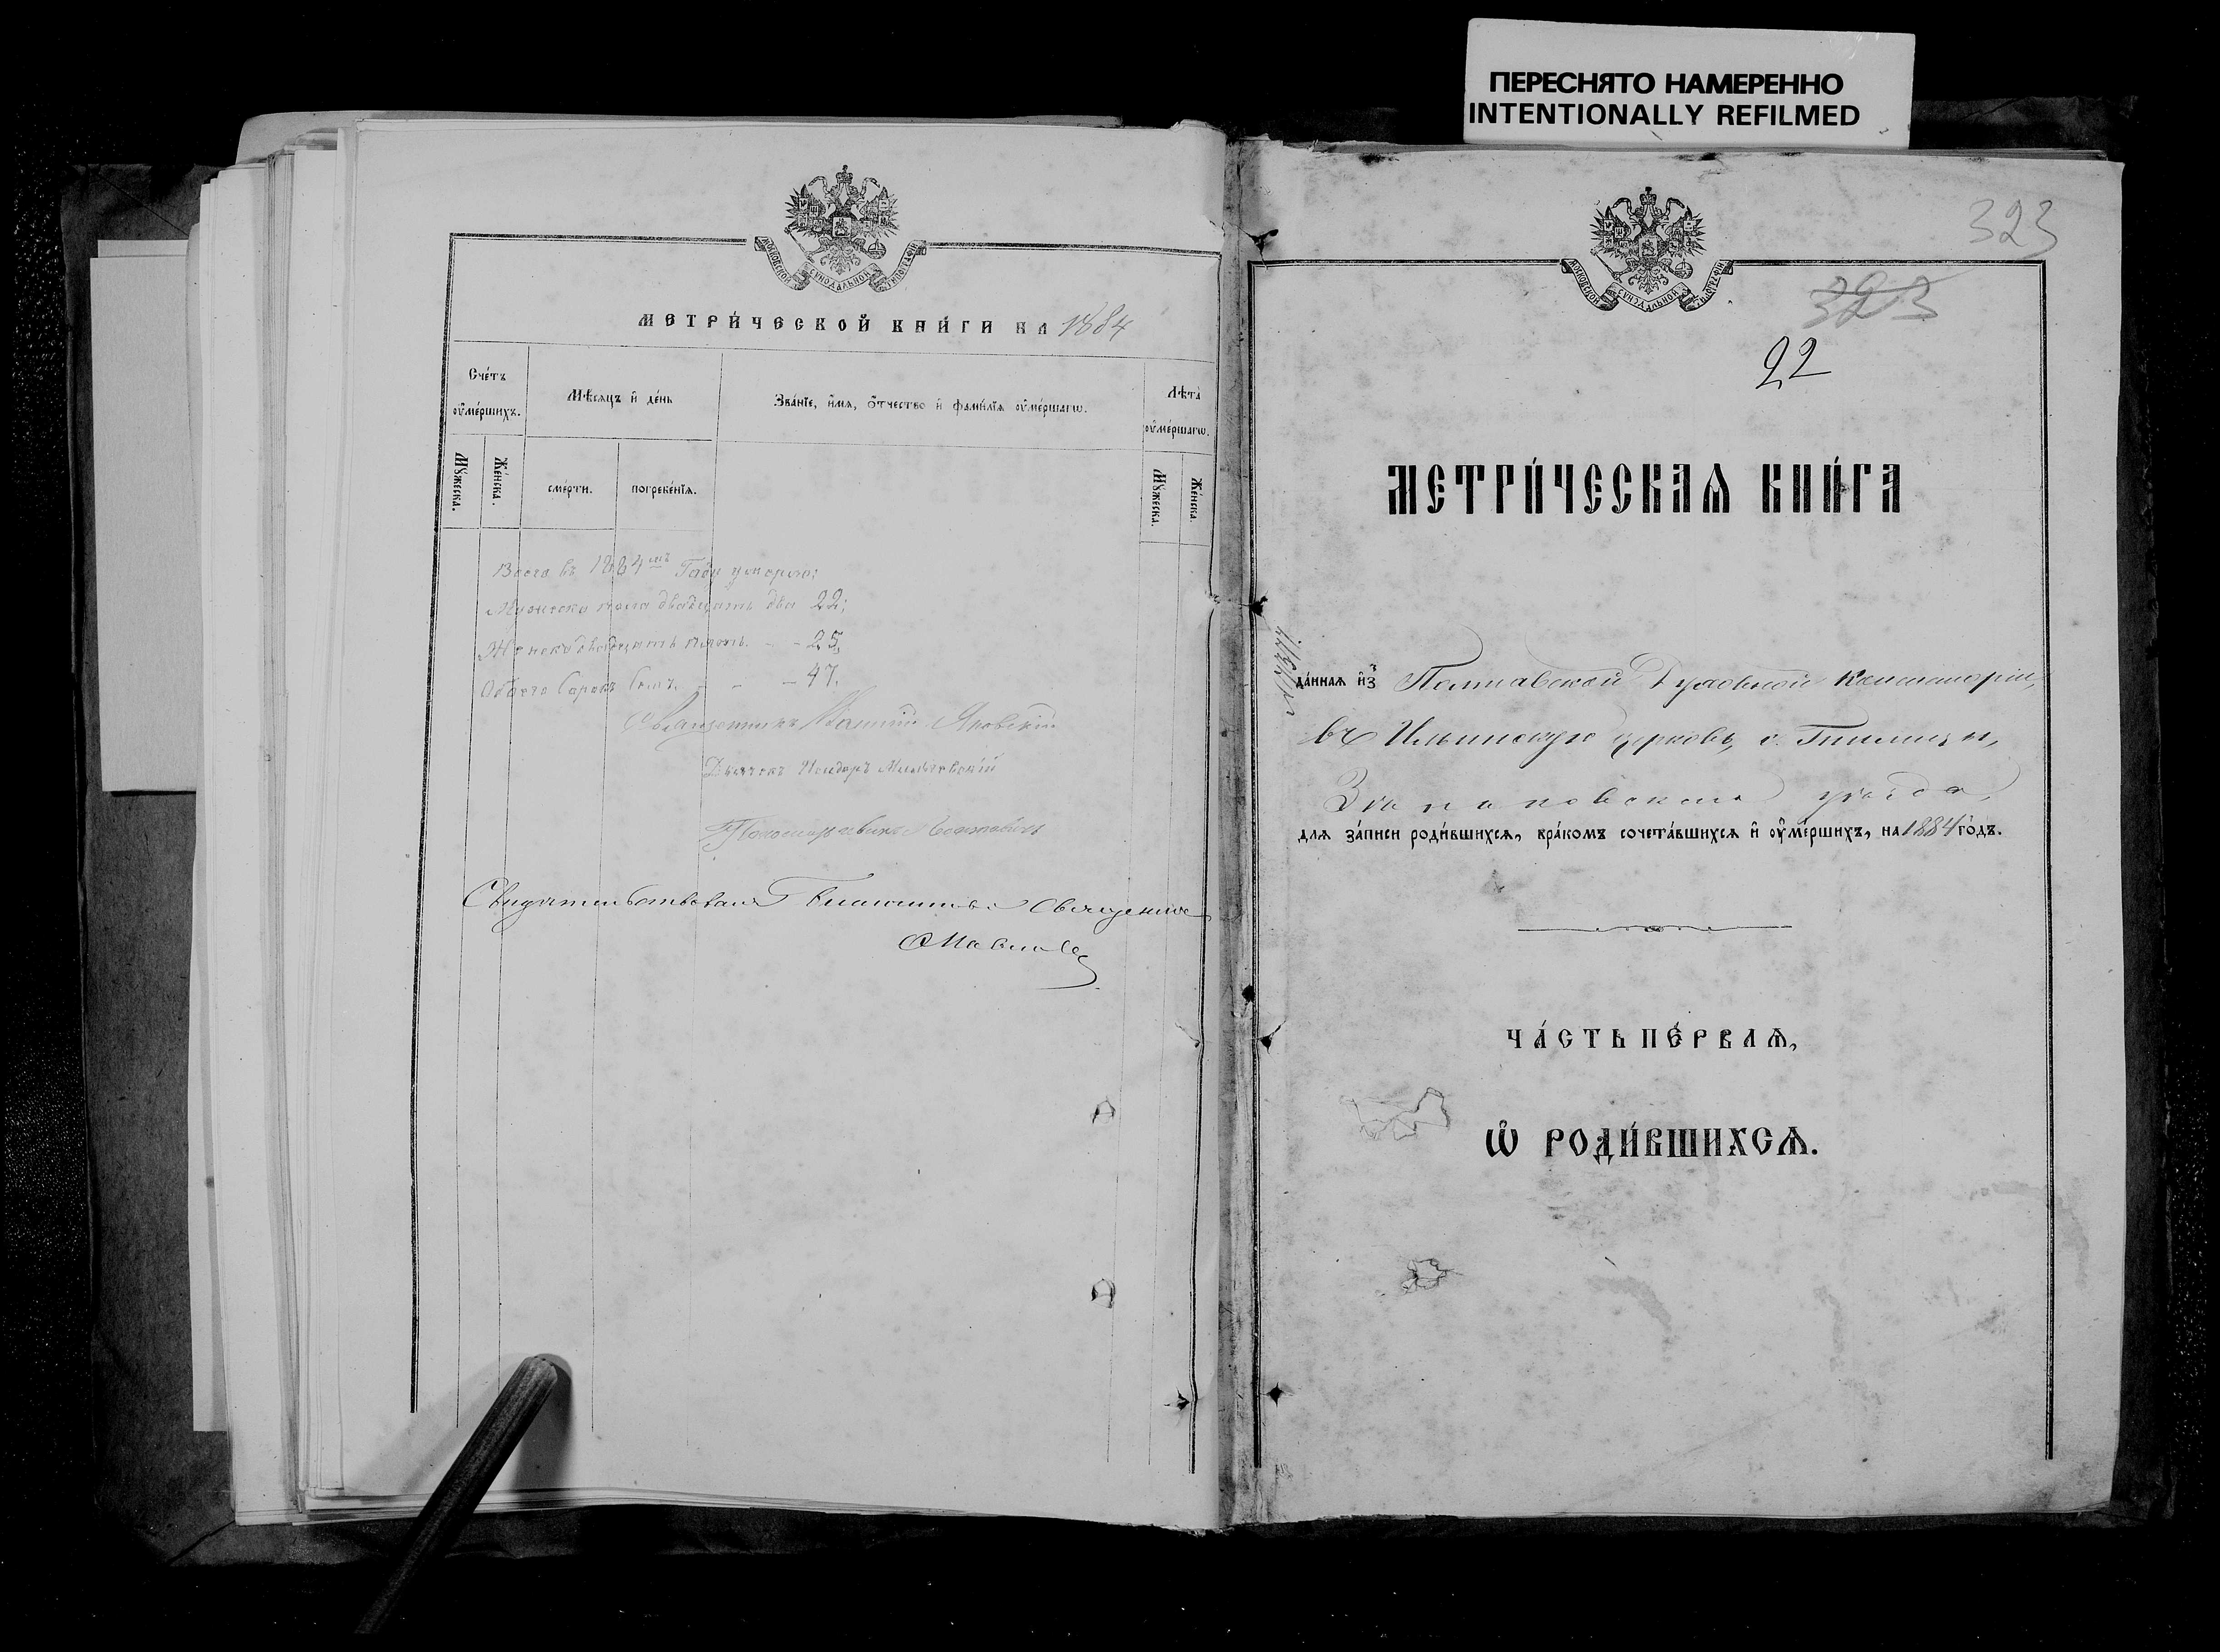 ПЕРЕСНЯТО НАМЕРЕННО
INTENTIONALLY REFILMED
МОСКОВСКОЙ СѴНОДАЛЬНОЙ ТИПОГРАФІИ
МЕТРИ́ЧЕСКОЙ КНИ́ГИ НА 1884
Сче́тъ ᲂу҆ме́ршихъ.
Мѣ́сяцъ и҆ де́нь
Зва́нїе, и҆́мя, ѻ҆́тчество и҆ фами́лїя ᲂу҆ме́ршагѡ.
Лѣ́та ᲂу҆ме́ршагѡ.
Мꙋ́жеска.
Же́нска.
сме́рти.
погребе́нїя.
Мꙋ́жеска.
Же́нска.
Всего въ 1884мъ Году умерло:
Мужеска пола двадцать два 22;
Женска двадцать пять - - 25,
Обоего Сорокъ Семъ. - - - 47.
Священникъ Яновскій
Дьячокъ Исидоръ
Пономарь
Свидѣтельствовалъ Благочинный Священникъ
323
МОСКОВСКОЙ СѴНОДАЛЬНОЙ ТИПОГРАФІИ
323
22
МЕТРИ́ЧЕСКАѦ КНИ́ГА
да́нная и҆з̾ Полтавской Духовной Консисторіи,
въ Ильинскую церковь, с. Гмыли,
Зѣньковскаго уѣзда,
для за́писи роди́вшихся, бра́комъ сочета́вшихся и҆ ᲂу҆ме́ршихъ, на 1884 го́дъ.
ЧА́СТЬ ПЕ́РВАѦ,
Ѽ РОДИ́ВШИХСѦ.